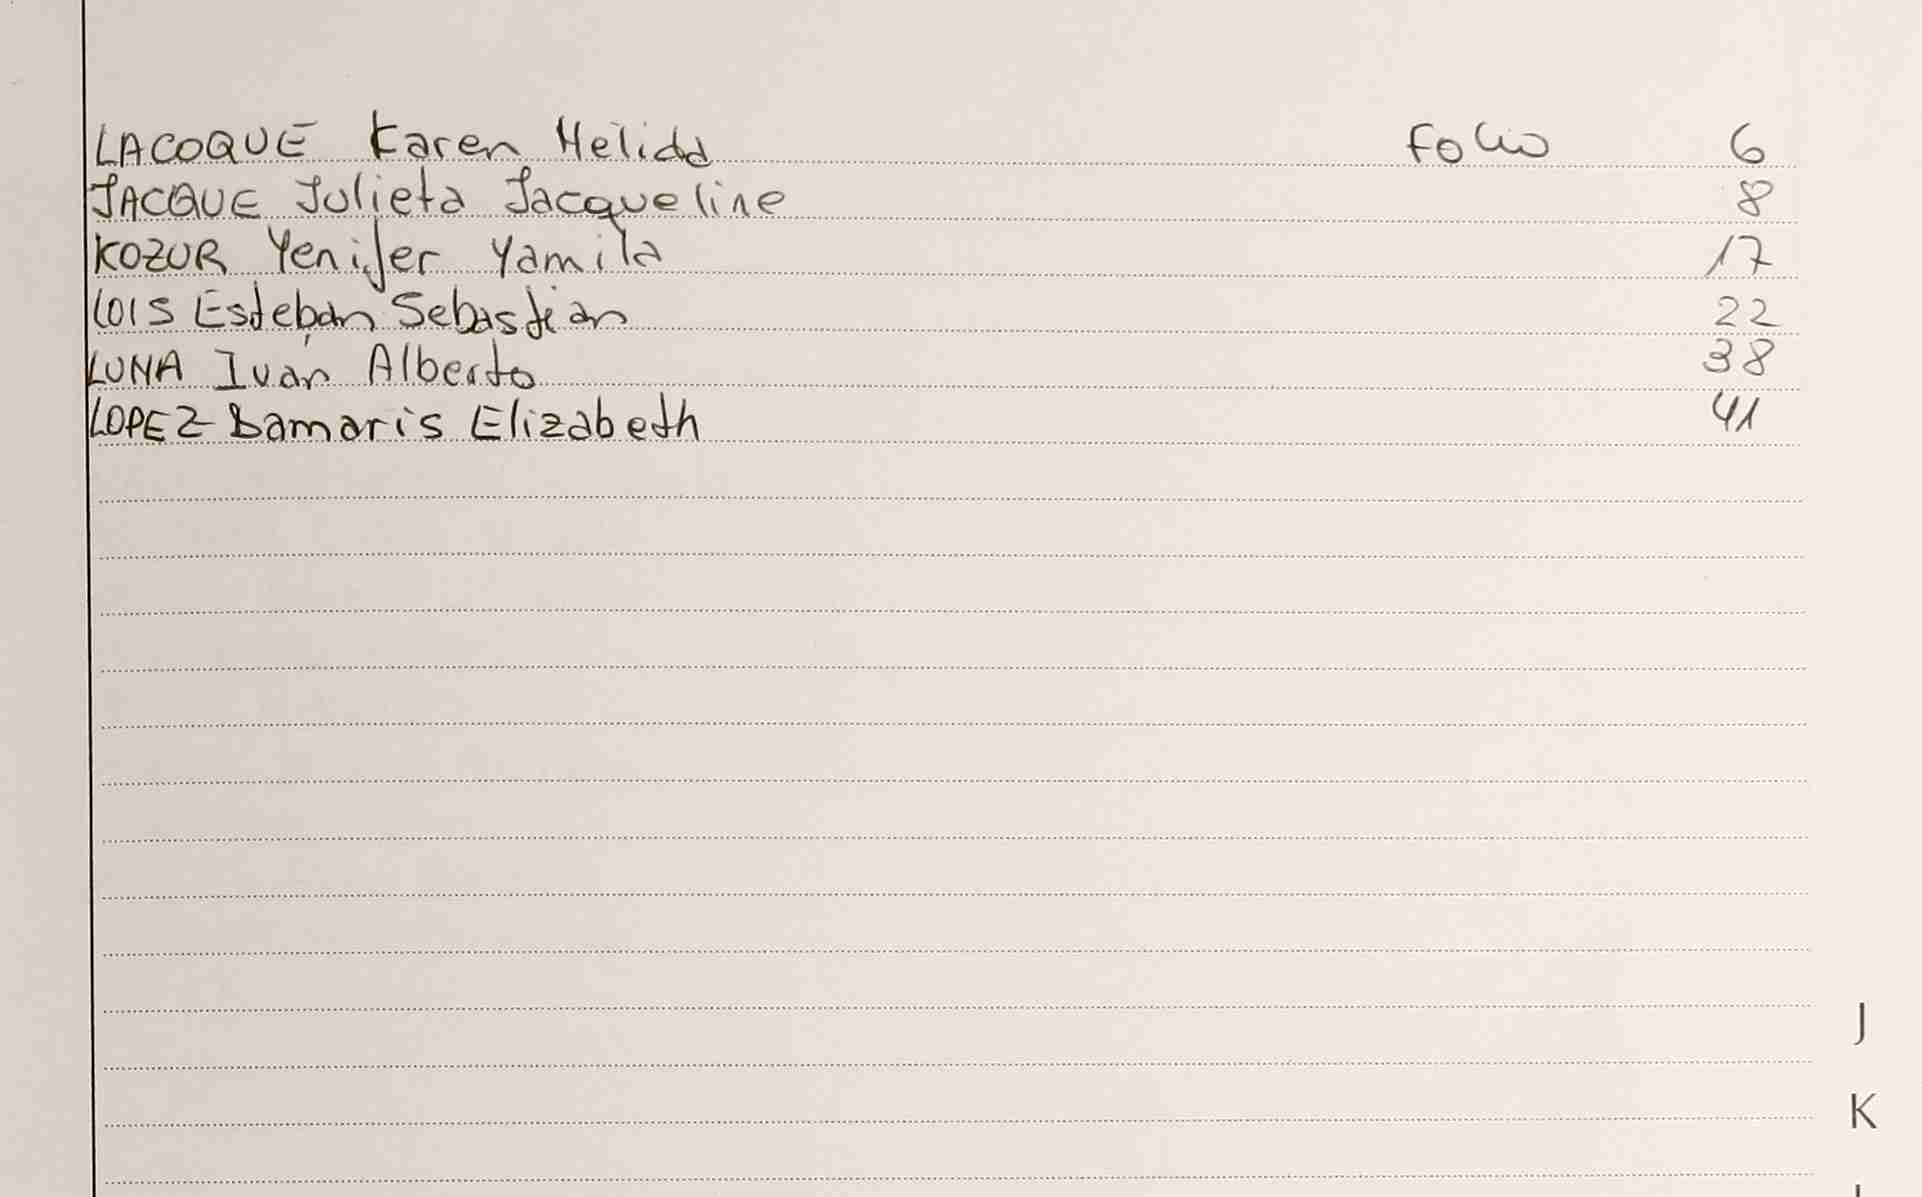 LACOQUE Karen Melida Folio 6
JACQUE Julieta Jacqueline 8
KOZUR Yenifer Yamila 17
LOIS Esteban Sebastian 22
LUNA Iván Alberto 38
LOPEZ Damaris Elizabeth 41
J
K